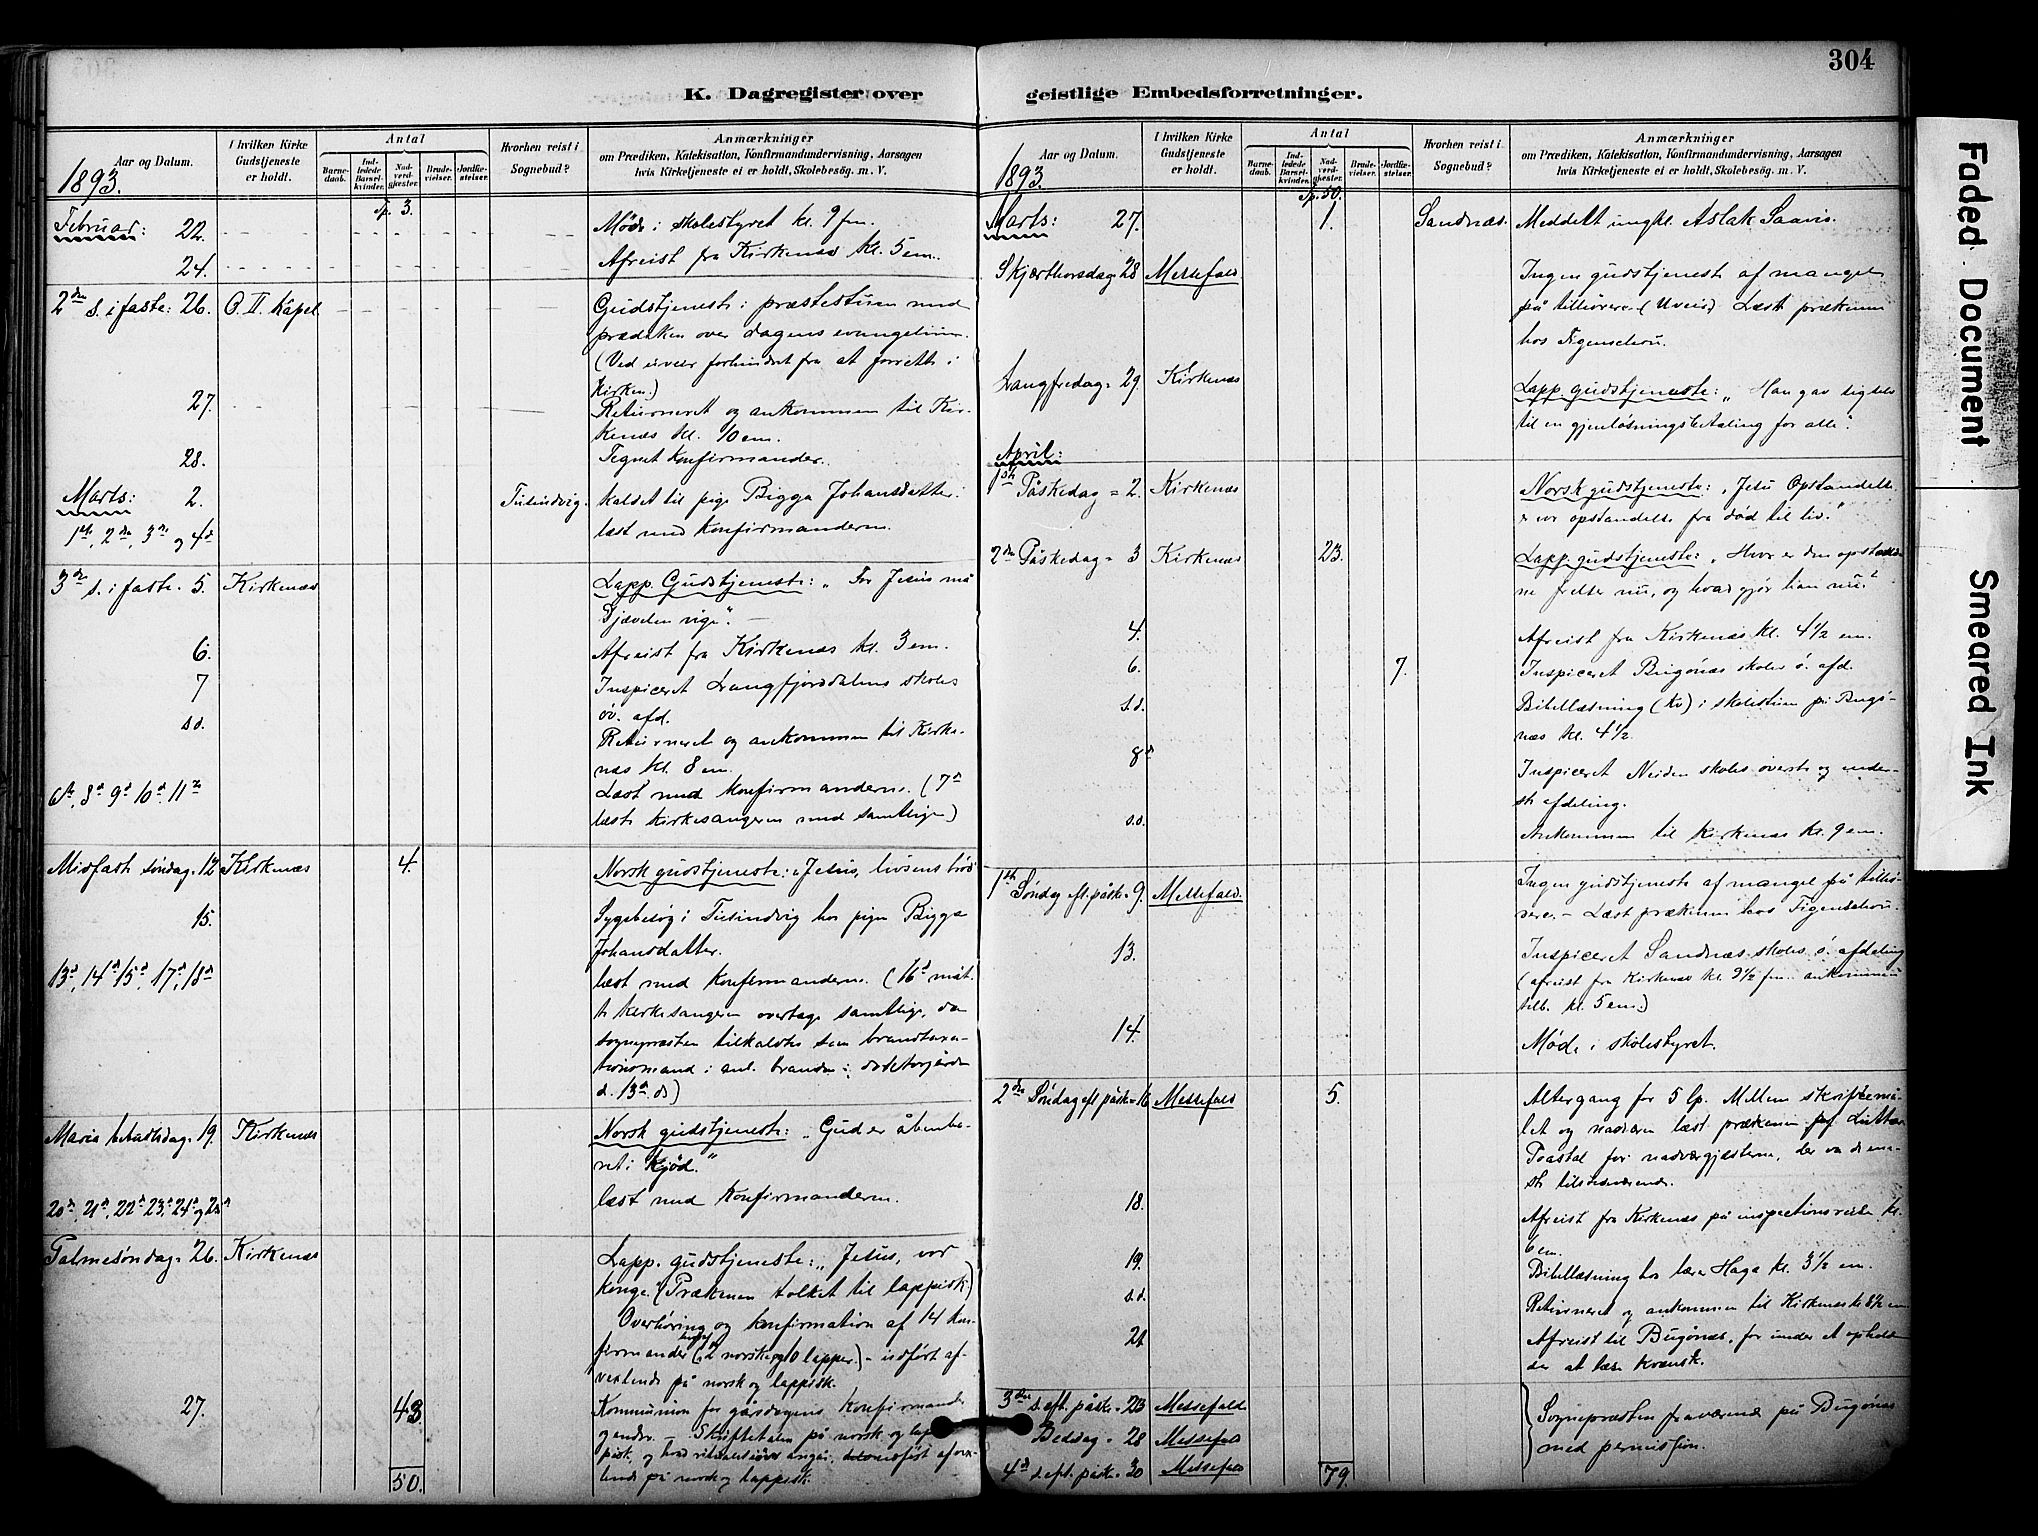 304
K. Dagregister over geistlige Embedsforretninger.
Aar og Datum.
1893.
I hvilken Kirke Gudstjeneste er holdt.
Antal
Barnedaab.
Indledede Barselkvinder.
Nadverdgjester.
Brudevielser.
Jordfæstelser.
Hvorhen reist i Sognebud?
Anmærkninger
om Prædiken, Katekisation, Konfirmandundervisning, Aarsagen
hvis Kirketjeneste ei er holdt, Skolebesøg. m. V.
Tp. 3.
Februar: 22. Møde i skolestyret kl. 9 fm.
24. Afreist fra Kirkenæs kl. 5 em.
2den s. i faste: 26. O. II. Kapel Gudstjeneste i præstestuen med
prædiken over dagens evangelium.
(Ved uveir forhindret fra at forrette i
kirken.)
27. Returneret og ankommen til Kir-
kenæs kl. 10 em.
28. Tegnet konfirmander.
Marts: 2. kaldet til pige Bigga Johansdatter
1ste, 2den, 3die og 4de læst med konfirmanderne.
3die s. i faste. 5. Kirkenæs Lapp. Gudstjeneste: „For Jesus må
Djævelen vige".
6. Afreist fra Kirkenæs kl. 3 em.
7 Inspiceret Langfjorddalens skoles
øv. afd.
s.d. Returneret og ankommen til Kirke-
næs kl. 8 em.
6te, 8de 9de 10de 11te Læst med konfirmanderne. (7de
læste kirkesangeren med samtlige)
Midfaste søndag. 12 Kirkenæs 4. Norsk gudstjeneste: Jesus, livsens brød
15. Sygebesøg i hos pigen Bigga
Johansdatter.
13de, 14de 15de, 17de, 18de læst med konfirmanderne. (16de måt-
te kirkesangeren overtage samtlige, da
sognepræsten tilkaldtes som brandtaxa-
tionsmand i anl. branden i
d. 13de ds)
Maria bebudelsesdag. 19. Kirkenæs Norsk gudstjeneste: „Gud er åbenba-
ret i kjød."
20de, 21de, 22de 23de 24de og 25de læst med konfirmanderne.
Palmesøndag. 26. Kirkenæs Lapp. gudstjeneste: „Jesus, vor
konge." (Prækenen tolket til lappisk)
Overhøring og konfirmation af 14 kon-
firmander (2 norske og 10 lapper.) - udført af-
vexlende på norsk og lappisk.
27. 43 Kommunion for gårsdagens konfirmander
og andre - Skriftetalen på norsk og lap-
pisk, og hvad ritualet angår,
lende på norsk og lappisk.
50.
Aar og Datum.
1893.
I hvilken Kirke Gudstjeneste er holdt.
Antal
Barnedaab.
Indledede Barselkvinder.
Nadverdgjester.
Brudevielser.
Jordfæstelser.
Hvorhen reist i Sognebud?
Anmærkninger
om Prædiken, Katekisation, Konfirmandundervisning, Aarsagen
hvis Kirketjeneste ei er holdt, Skolebesøg. m. V.
Tp. 50.
Marts: 27. 1. Sandnæs. Meddelt ungkl. Aslak Saavis.
Skjærthorsdag. 28 Messefald Ingen gudstjeneste af mangel
på tilhørere. (Uveir) Læst prækenen
hos Figenschou.
Langfredag. 29. Kirkenæs Lapp. gudstjeneste: „Han gav sig selv
til en gjenløsningsbetaling for alle."
April:
1ste Påskedag = 2. Kirkenæs Norsk gudstjeneste: „Jesu Opstandelse
er vor opstandelse fra død til liv."
2den Påskedag = 3 Kirkenæs 23. Lapp. gudstjeneste: „Hvor er den opstand-
ne frelser nu, og hvad gjør han nu?"
4. Afreist fra Kirkenæs kl. 4½ em.
6. 7. Inspiceret Bugønæs skoles ø. afd.
s.d. Bibellæsning (kv) i skolestuen på Bugø-
næs kl. 4½.
8de Inspiceret Neiden skoles øverste og neder-
ste afdeling.
s.d. Ankommen til Kirkenæs kl. 9 em.
1ste Søndag eft. påske. 9. Messefald. Ingen gudstjeneste af mangel på tilhø-
rere. - Læst prækenen hos Figenschou.
13. Inspiceret Sandnæs skoles ø. afdeling
(afreist fra Kirkenæs kl. 9½ fm. ankommen
tilb. kl. 5 em.)
14. Møde i skolestyret.
2den Søndag eft. påske. 16 Messefald 5. Altergang for 5 lp. Mellem skriftemå-
let og nadveren læst prækenen
Poastal for nadvergjæsterne, der var de ene-
ste tilstedeværende.
18. Afreist fra Kirkenæs på inspectionsreise kl.
6 em.
19. Bibellæsning hos lærer Haga kl. 3½ em.
s.d. Returneret og ankommen til Kirkenæs kl. 8½ em
21. Afreist til Bugønæs, for under et ophold
der at lære kvænsk.
3die s. eft. påske. 23 Messefald
Bededag. 28 Messefald Sognepræsten fraværende på Bugønæs
4de s. eft. påske. 30 Messefald med permission.
79.
Faded Document
Smeared Ink